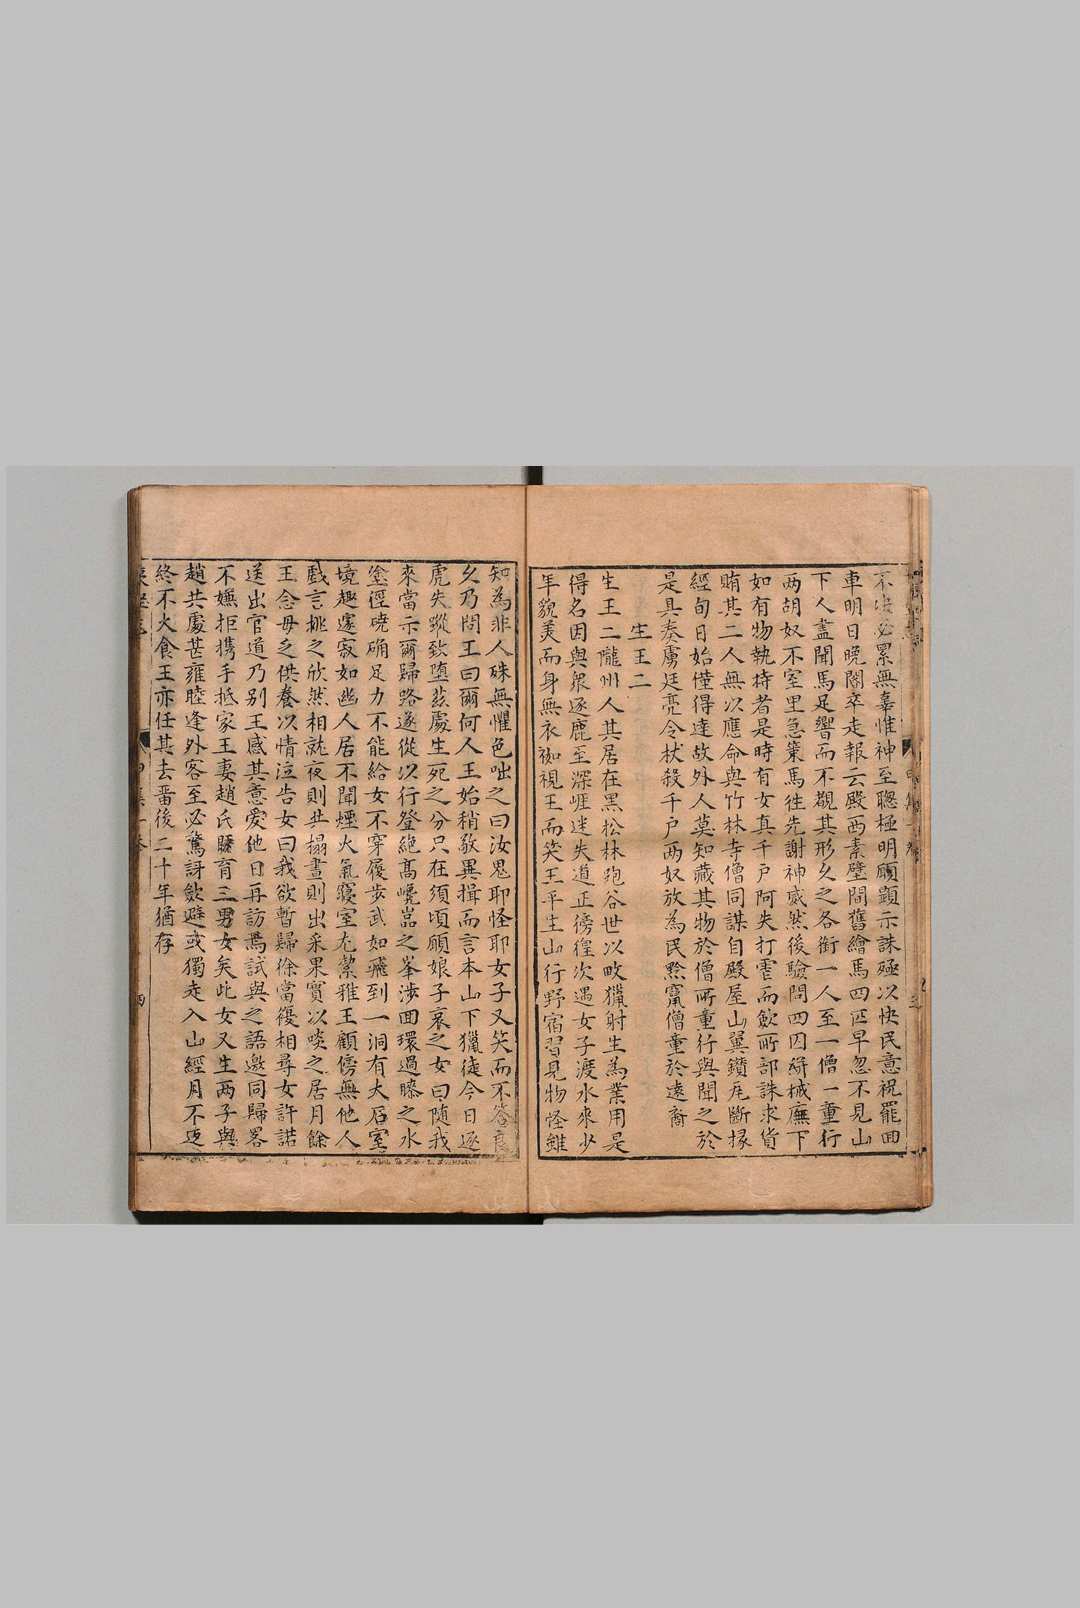 不決必累無辜惟神至聰極明願顯示誅殛以快民意祝罷回
車明日晚閽卒走報云殿西素壁間舊繪馬四匹早忽不見山
下人盡聞馬足響而不覩其形久之各銜一人至一僧一童行
两胡奴不室里急策馬徃先謝神威然後驗問四囚絣械廡下
如有物執持者是時有女真千戶阿失打霍而飲所部誅求貨
賄其二人無以應命與竹林寺僧同謀自殿屋山翼鑽㡯斷椽
經旬日始僅得達故外人莫知藏其物於僧所童行與聞之於
是具奏虜廷亮令杖殺千戶两奴放為民黥竄僧童於遠裔
生王二
生王二隴州人其居在黑松林跑谷世以畋獵射生為業用是
得名因與衆逐鹿至深崕迷失道正傍徨次遇女子渡水來少
年貌美而身無衣袽視王而笑王平生山行野宿習見物怪雖
知為非人殊無懼色咄之曰汝鬼耶怪耶女子又笑而不答良
久乃問王曰爾何人王始稍敬異揖而言本山下獵徒今日逐
虎失蹤致堕茲處生死之分只在須頃願娘子哀之女曰随我
來當示爾歸路遂從以行登絶髙巉嵓之峯涉回環過膝之水
塗徑硗确足力不能給女不穿履步武如飛到一洞有大石室
境趣邃寂如幽人居不聞煙火氣寢室尤潔雅王顧傍無他人
戲言挑之欣然相就夜則共榻晝則出采果實以啖之居月餘
王念母乏供養以情泣告女曰我欲暫歸徐當復相尋女許諾
送出官道乃别王感其意愛他日再訪焉試與之語邀同歸畧
不嫌拒携手抵家王妻趙氏賸育三男女矣此女又生两子與
趙共處甚雍睦逢外客至必驚訝歛避或獨走入山經月不返
終不火食王亦任其去畱後二十年猶存